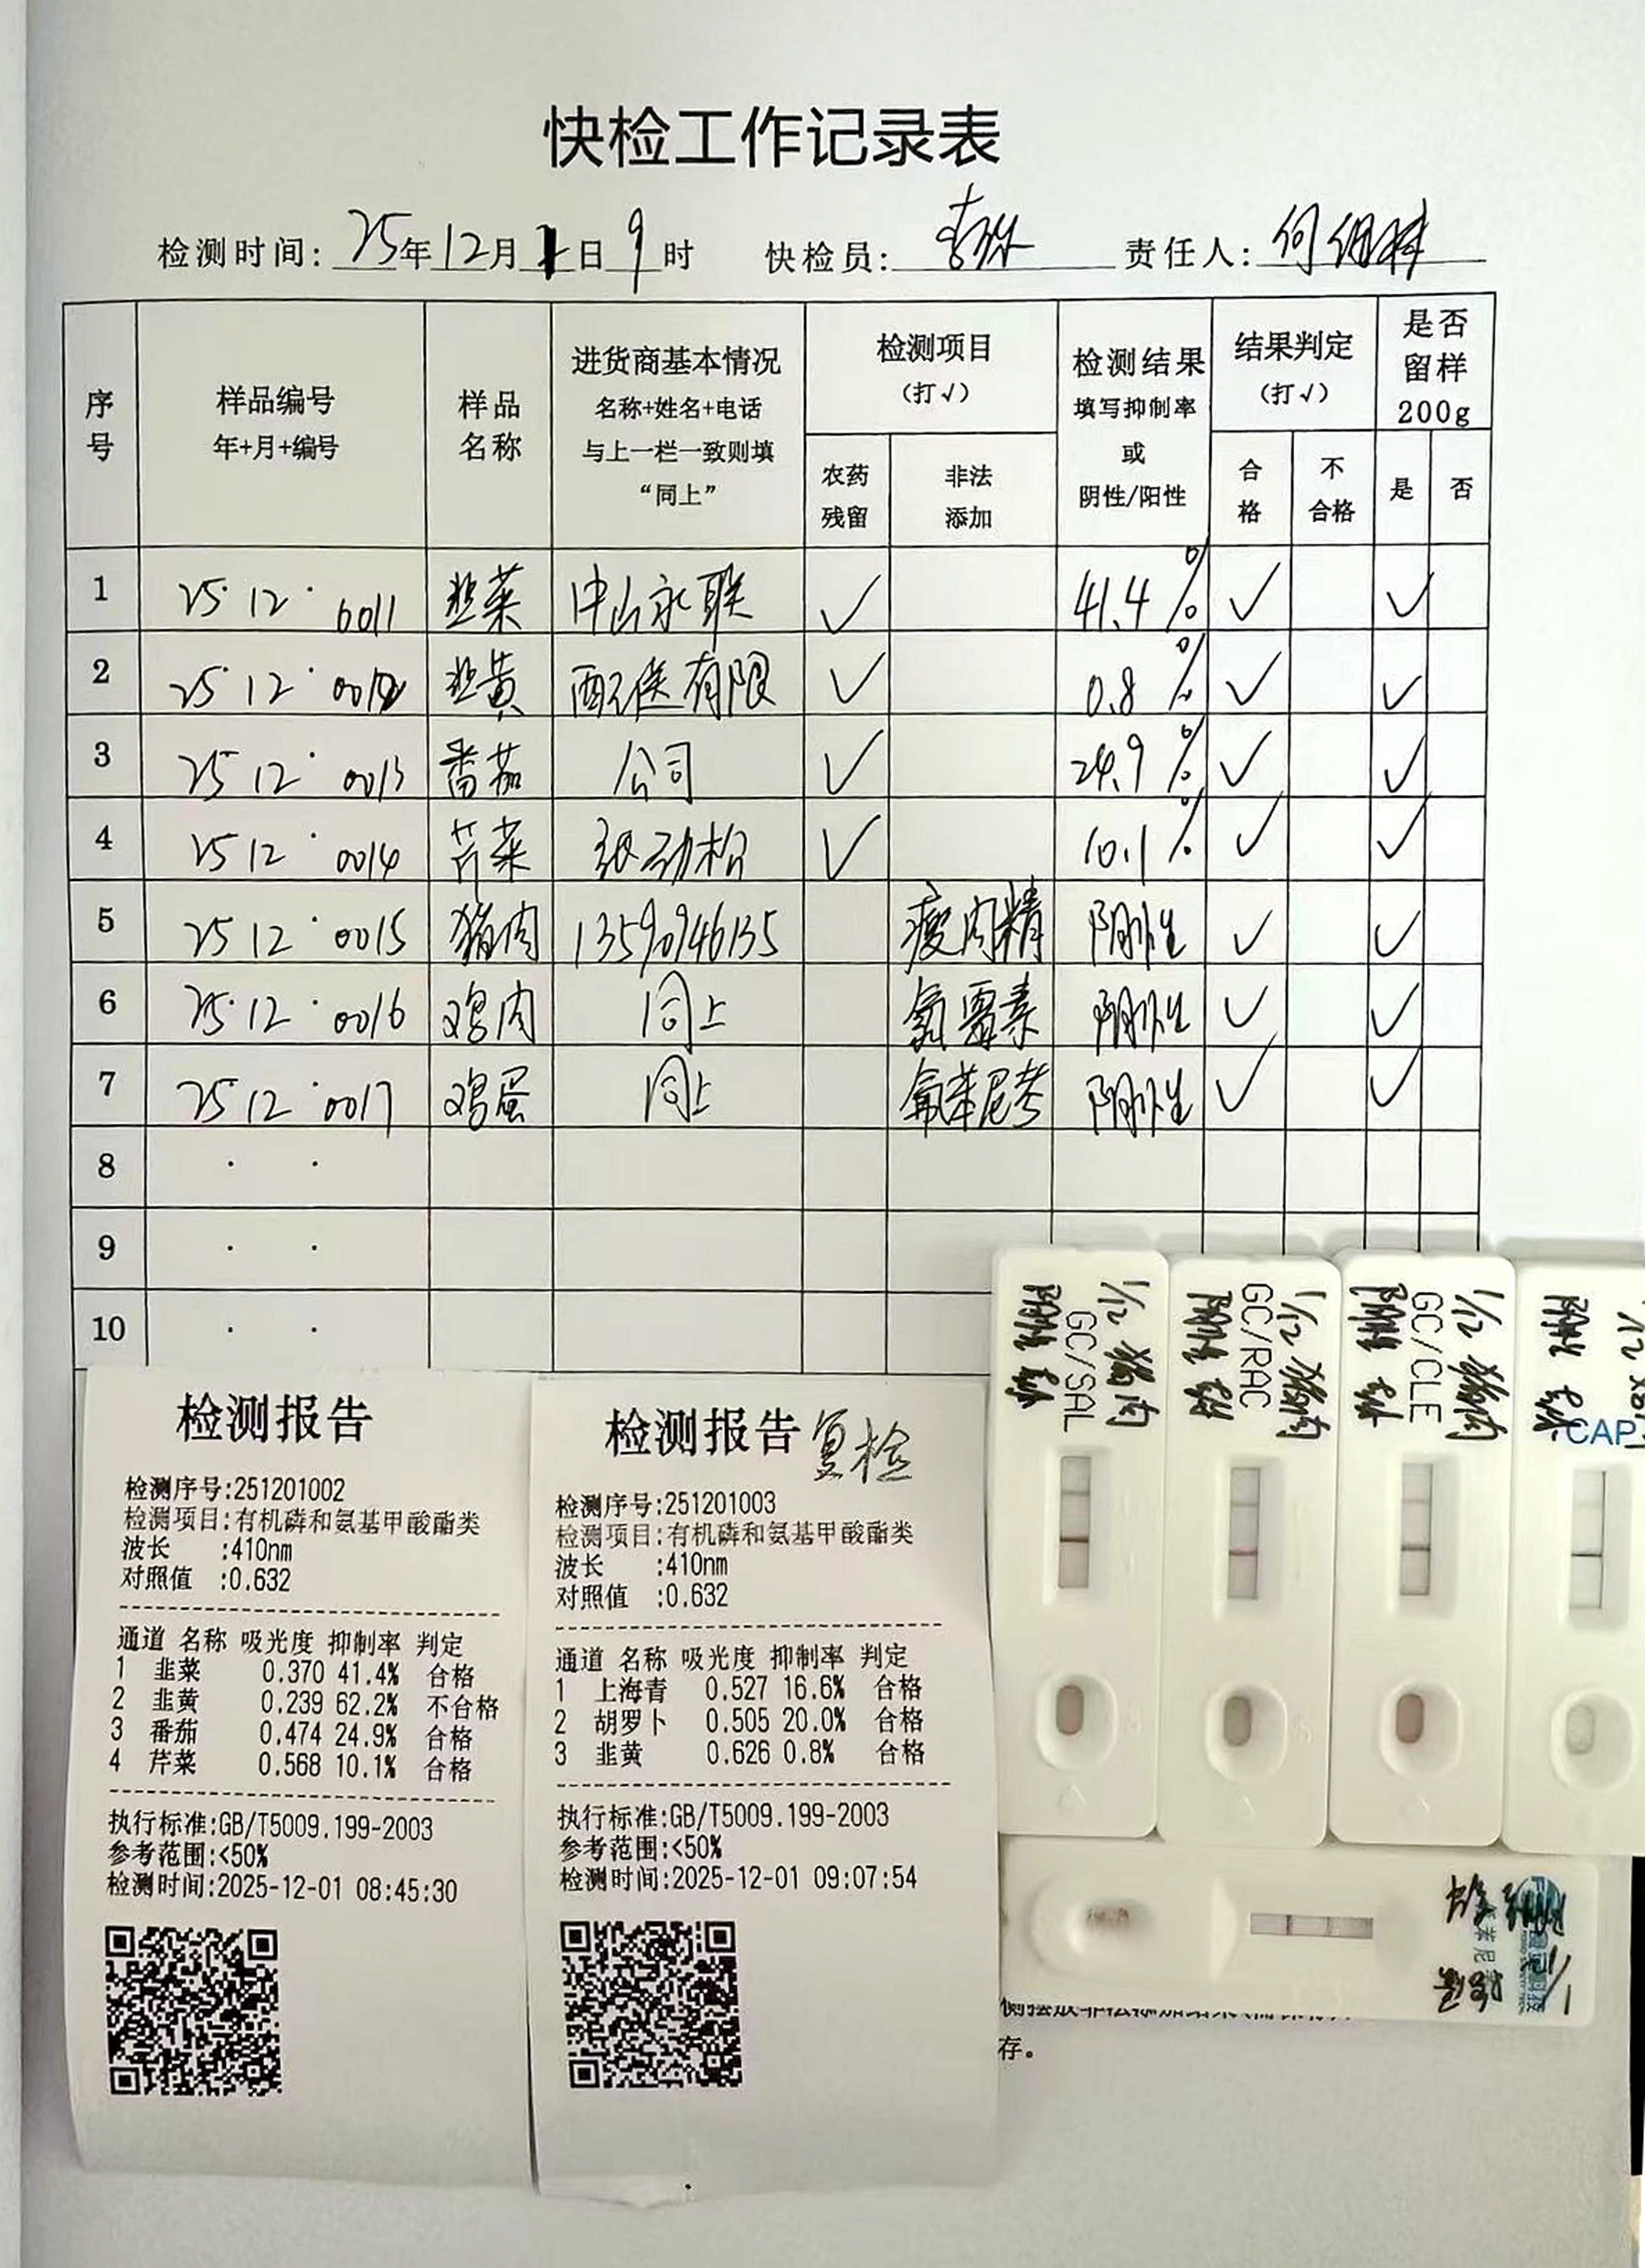 快检工作记录表
检测时间: 25年12月1日9时 快检员: 责任人:
序号 样品编号 年+月+编号 样品名称 进货商基本情况 名称+姓名+电话 与上一栏一致则填“同上” 检测项目(打√) 农药残留 非法添加 检测结果 填写抑制率或阴性/阳性 结果判定(打√) 合格 不合格 是否留样200g 是 否
1 25·12·0011 韭菜 中山永联 ✓ 41.4% ✓ ✓
2 25·12·0012 韭黄 配送有限 ✓ 0.8% ✓ ✓
3 25·12·0013 番茄 公司 ✓ 24.9% ✓ ✓
4 25·12·0014 芹菜 张劲松 ✓ 10.1% ✓ ✓
5 25·12·0015 猪肉 13590946135 瘦肉精 阴性 ✓ ✓
6 25·12·0016 鸡肉 同上 氯霉素 阴性 ✓ ✓
7 25·12·0017 鸡蛋 同上 氟苯尼考 阴性 ✓ ✓
8 · ·
9 · ·
10 · ·
检测报告
检测序号:251201002
检测项目:有机磷和氨基甲酸酯类
波长 :410nm
对照值 :0.632
通道 名称 吸光度 抑制率 判定
1 韭菜 0.370 41.4% 合格
2 韭黄 0.239 62.2% 不合格
3 番茄 0.474 24.9% 合格
4 芹菜 0.568 10.1% 合格
执行标准:GB/T5009.199-2003
参考范围:<50%
检测时间:2025-12-01 08:45:30
检测报告 复检
检测序号:251201003
检测项目:有机磷和氨基甲酸酯类
波长 :410nm
对照值 :0.632
通道 名称 吸光度 抑制率 判定
1 上海青 0.527 16.6% 合格
2 胡罗卜 0.505 20.0% 合格
3 韭黄 0.626 0.8% 合格
执行标准:GB/T5009.199-2003
参考范围:<50%
检测时间:2025-12-01 09:07:54
1/12 猪肉
GC/SAL
阴性
1/12 猪肉
GC/RAC
阴性
1/12 猪肉
GC/CLE
阴性
1/12
CAP
阴性
鸡蛋
存。